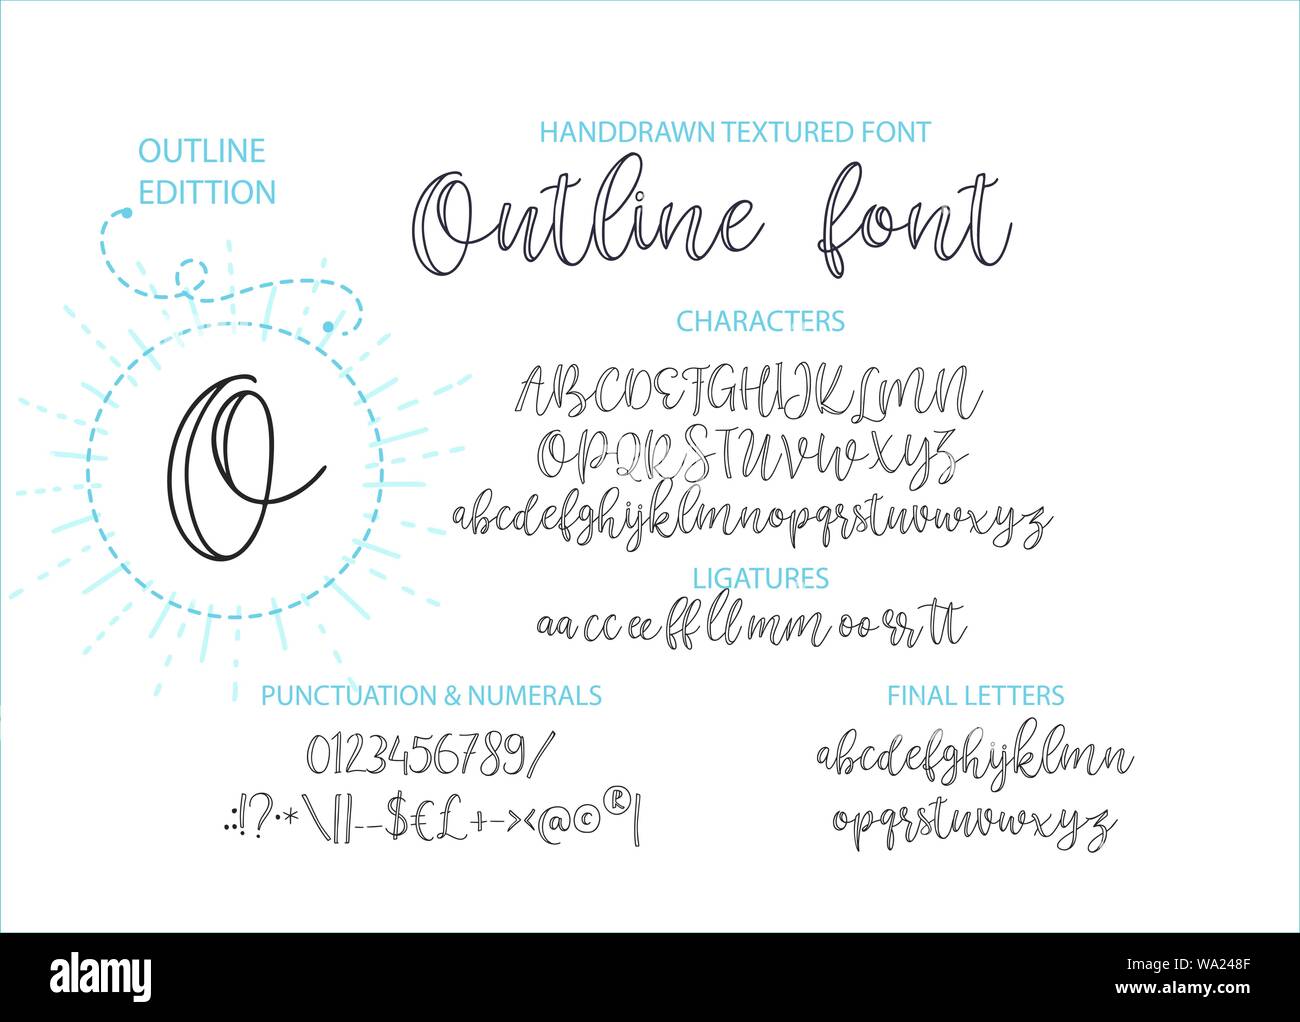 OUTLINE
EDITTION
HANDDRAWN TEXTURED FONT
Outline font
O
CHARACTERS
ABCDEFGHIJKLMN
OPQRSTUVWXYZ
abcdefghijklmnopqrstuvwxyz
LIGATURES
aa cc ee ff ll mm oo rr tt
PUNCTUATION & NUMERALS
0123456789/
.:!?·*\||--$€£+-><@©®|
FINAL LETTERS
abcdefghijklmn
opqrstuvwxyz
alamy
Image ID: WA248F
www.alamy.com